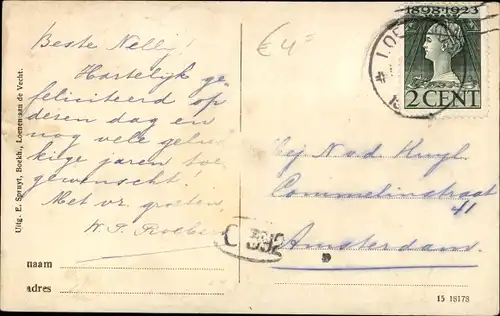 Beste Nelly!
Hartelijk ge
feliciteerd op
dezen dag en
nog vele geluk
kige jaren toe
gewenscht!
Met vr. groeten
W. P.
naam
adres
Uitg. E. Spruyt, Boekh., Loenen aan de Vecht.
€ 4=
1898-1923
2 CENT
LOE
Mej N v d Huyl
Commelinstraat
41
Amsterdam.
15 18178